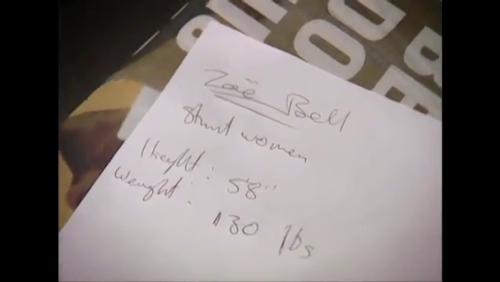 Zoë Bell
stunt women
Height: 5'8"
Weight: 130 lbs